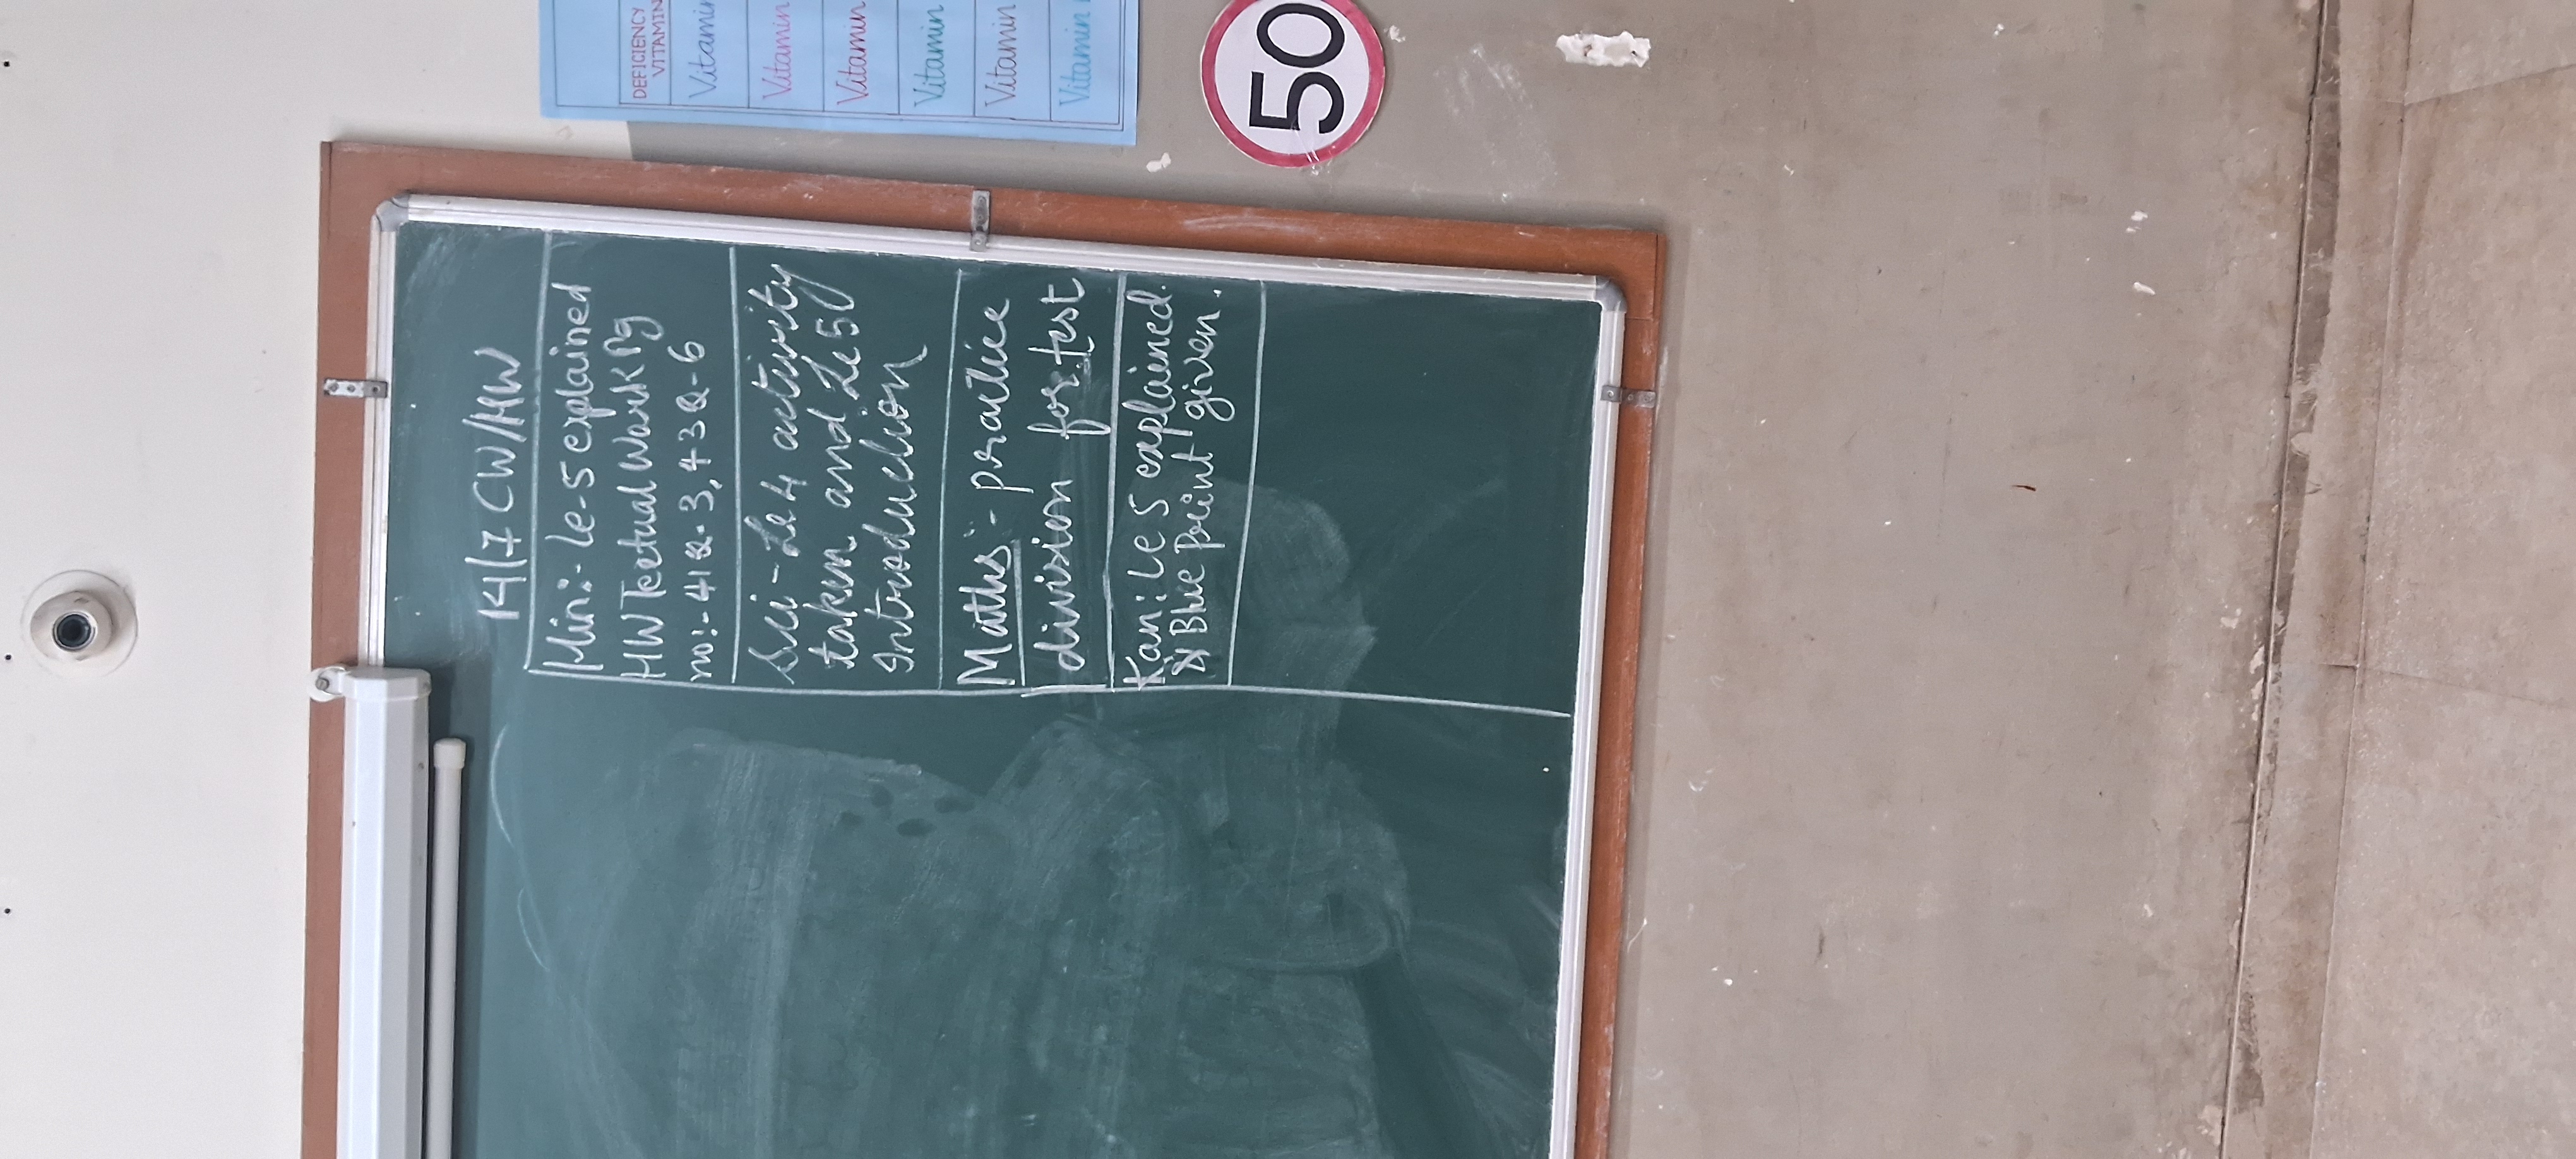 14/7 CW/HW
Hin:- Le-5 explained
HW Textual Work Pg
no:- 41 Q-3, 43 Q-6
Sci - Le 4 activity
taken and Le 5
Introduction
Maths:- practice
division for test
Kan: Le 5 explained.
Blue point given.
DEFICIENCY
VITAMIN
Vitamin
Vitamin
Vitamin
Vitamin
Vitamin
Vitamin
50